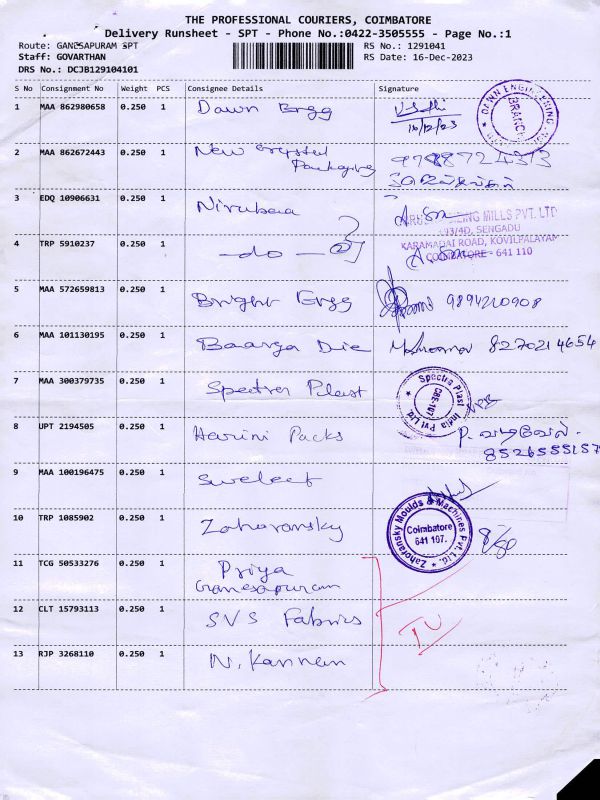 THE PROFESSIONAL COURIERS, COIMBATORE
Delivery Runsheet - SPT - Phone No.:0422-3505555 - Page No.:1
Route: GANESAPURAM SPT
RS No.: 1291041
Staff: GOVARTHAN
RS Date: 16-Dec-2023
DRS No.: DCJB129104101
S No Consignment No Weight PCS Consignee Details Signature
1 MAA 862980658 0.250 1 Dawn Engg
16/12/23
DAWN ENGINEERING
BRANCH
2 MAA 862672443 0.250 1 New Crystal
Packaging
3 EDQ 10906631 0.250 1 Nirubaa
MILLS PVT. LTD
93/4D, SENGADU
KARAMADAI ROAD, KOVILPALAYAM
COIMBATORE - 641 110
4 TRP 5910237 0.250 1 -do-
5 MAA 572659813 0.250 1 Bright Engg 9894210908
6 MAA 101130195 0.250 1 Baarga Die 8270214654
7 MAA 300379735 0.250 1 Spectra Plast
Spectra Plast India Pvt Ltd
CBE-107
8 UPT 2194505 0.250 1 Harini Packs P. வடிவேல்.
8526555157
9 MAA 100196475 0.250 1 Swelect
10 TRP 1085902 0.250 1 Zahoransky
Zahoransky Moulds & Machines Pvt. Ltd.
Coimbatore
641 107.
11 TCG 50533276 0.250 1 Priya
Ganesapuram
12 CLT 15793113 0.250 1 SVS Fabrics
13 RJP 3268110 0.250 1 N. Kannan